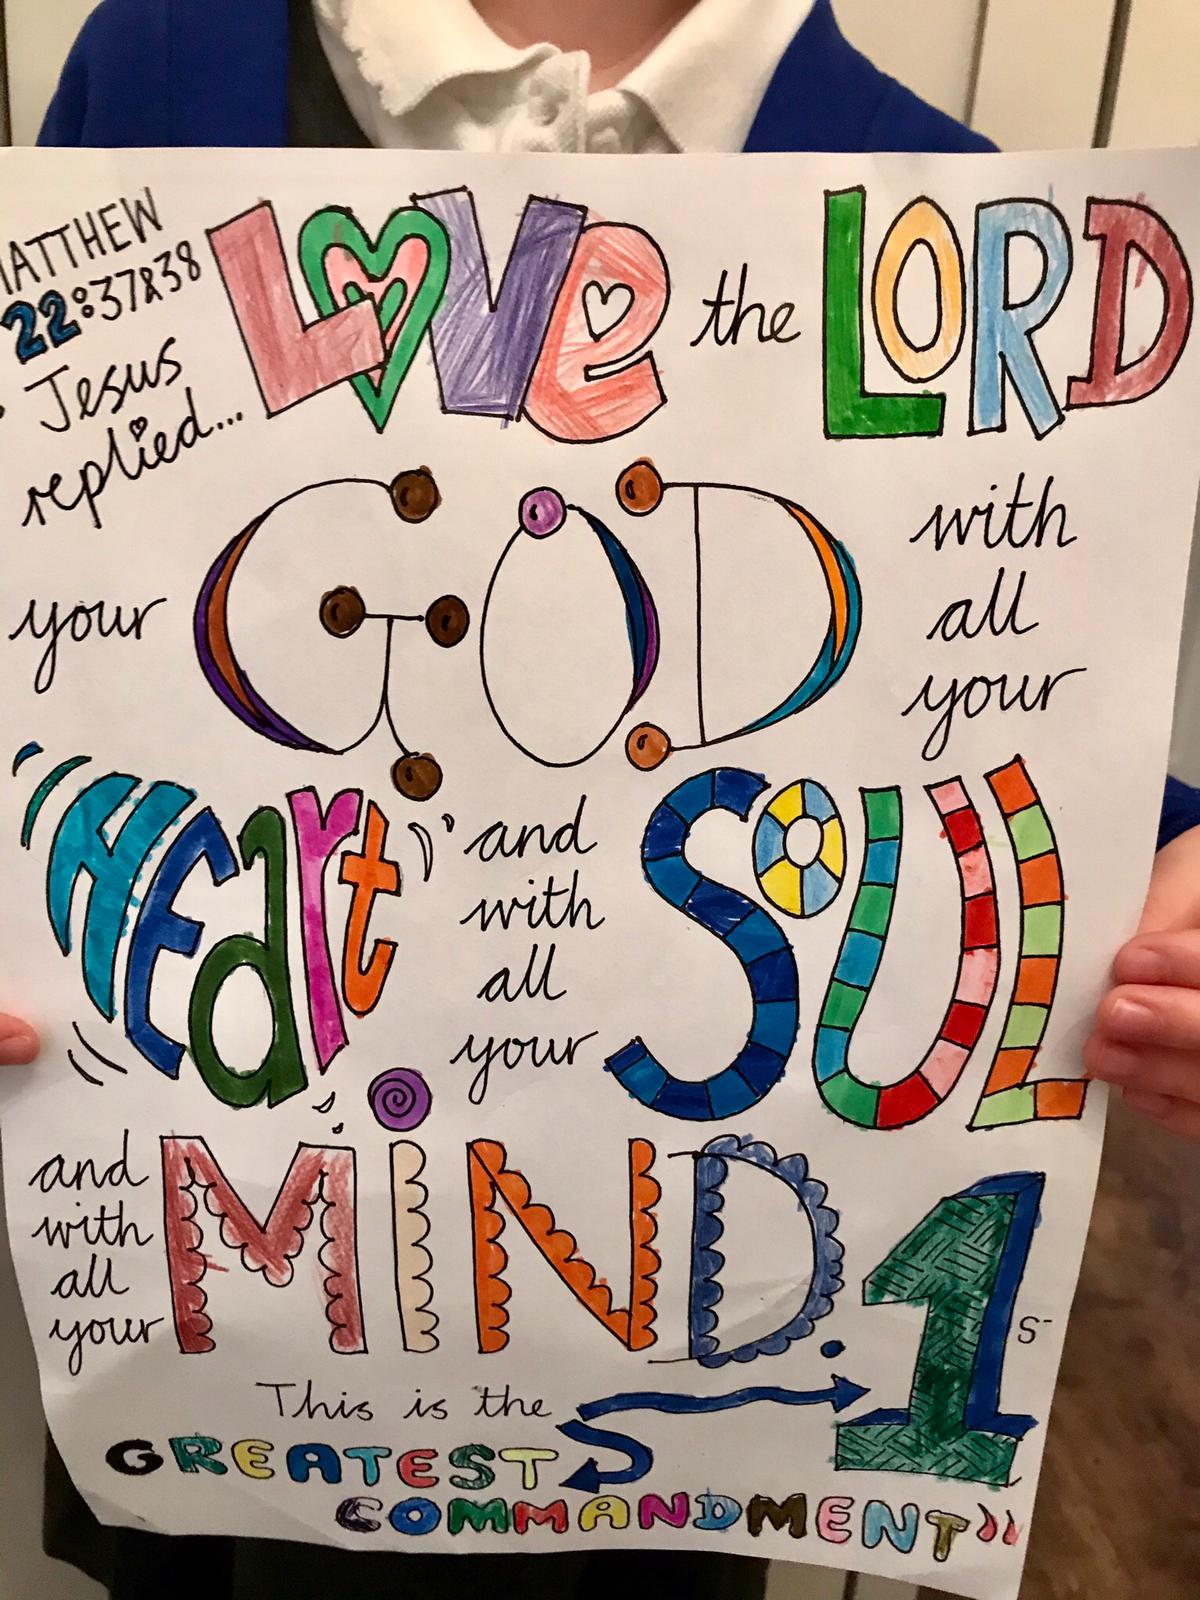 MATTHEW
22:37&38
Jesus
replied...
LOVe the LORD
your GOD with
all
your
HEart and with all your SOUL
and with all your MiND.
This is the 1 S
GREATEST
COMMANDMENT"